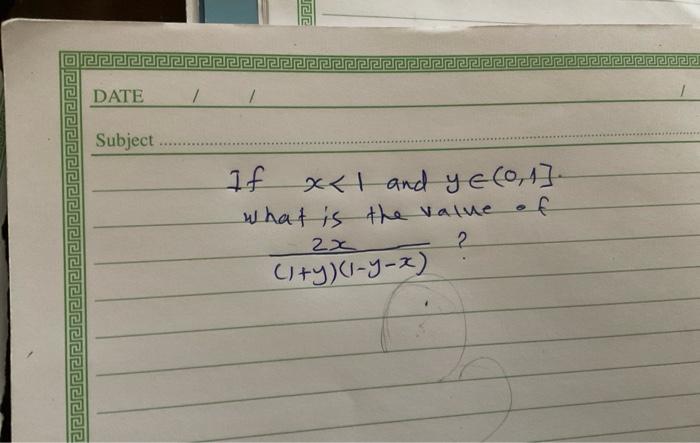 DATE / / /
Subject
If x<1 and y∈(0,1].
what is the value of
2x
(1+y)(1-y-x) ?